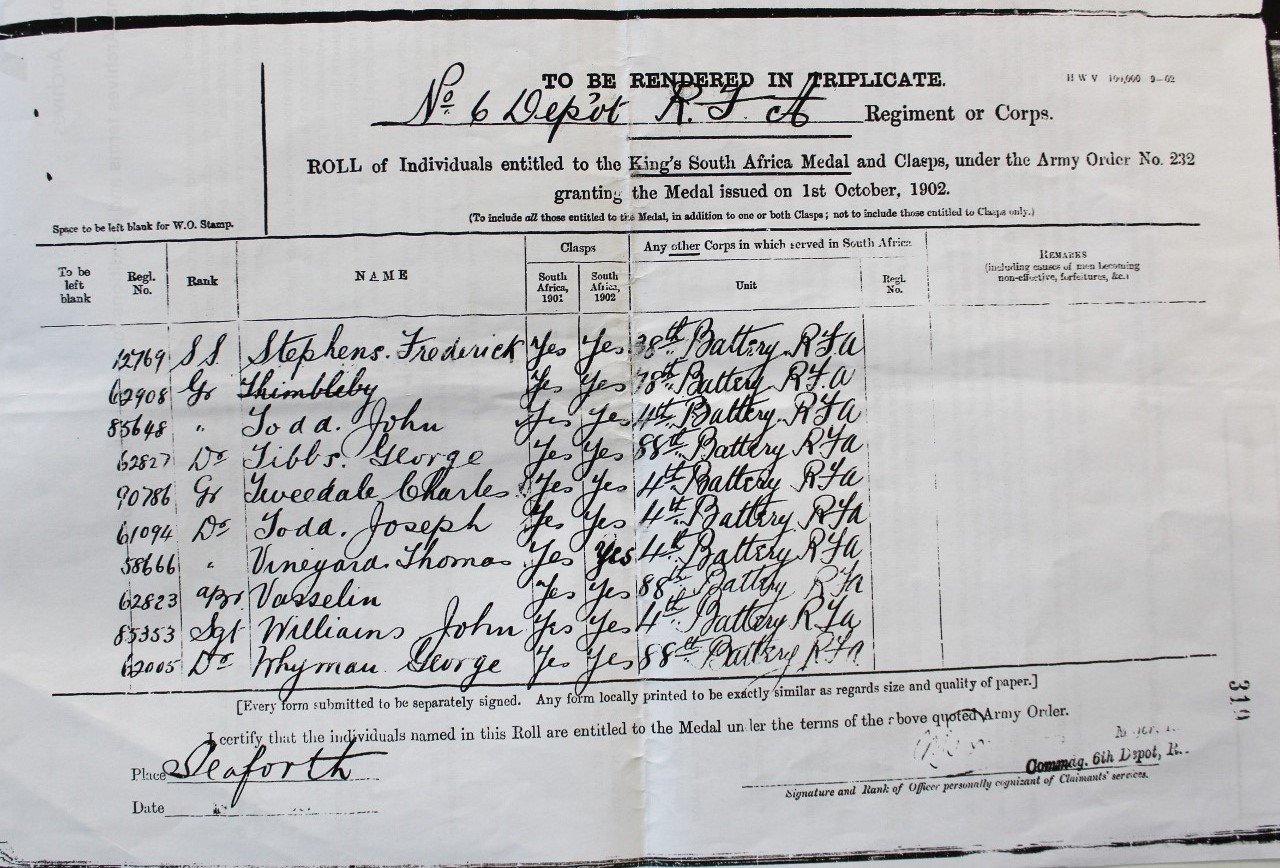 TO BE RENDERED IN TRIPLICATE.
H W V 9-02
No 6 Depôt R. F. A Regiment or Corps.
ROLL of Individuals entitled to the King's South Africa Medal and Clasps, under the Army Order No. 232
granting the Medal issued on 1st October, 1902.
(To include all those entitled to the Medal, in addition to one or both Clasps; not to include those entitled to Clasps only.)
Space to be left blank for W.O. Stamp.
To be left blank Regl. No. Rank NAME Clasps South Africa, 1901 South Africa, 1902 Any other Corps in which served in South Africa Unit Regl. No. REMARKS (including causes of men becoming non-effective, forfeitures, &c.)
12769 SS Stephens. Frederick Yes Yes 38th Battery RFA
62908 Gr Thimbleby Yes Yes 78th Battery R.F.A
85648 " Todd. John Yes Yes 4th Battery RFA
62827 Dr Tibbs. George Yes Yes 88th Battery RFA
90786 Gr Tweedale Charles Yes Yes 4th Battery RFA
61094 Dr Todd. Joseph Yes Yes 4th Battery RFA
58666 " Vineyard. Thomas Yes Yes 4th Battery RFA
62823 a/Br Vasselin Yes Yes 88th Battery RFA
85353 Sgt Williams John Yes Yes 4th Battery RFA
62005 Dr Whyman George Yes Yes 88th Battery RFA
[Every form submitted to be separately signed. Any form locally printed to be exactly similar as regards size and quality of paper.]
I certify that the individuals named in this Roll are entitled to the Medal under the terms of the above quoted Army Order.
Place Seaforth
Commdg. 6th Depot, R..
Signature and Rank of Officer personally cognizant of Claimants' services.
Date
319